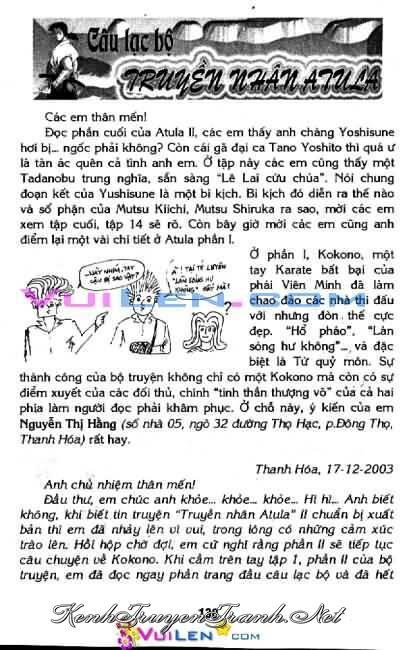 Câu lạc bộ
TRUYỀN NHÂN ATULA
Các em thân mến!
Đọc phần cuối của Atula II, các em thấy anh chàng Yoshisune
hơi bị... ngốc phải không? Còn cái gã đại ca Tano Yoshito thì quá ư
là tàn ác quên cả tình anh em. Ở tập này các em cũng thấy một
Tadanobu trung nghĩa, sẵn sàng "Lê Lai cứu chúa". Nói chung
đoạn kết của Yushisune là một bi kịch. Bi kịch đó diễn ra thế nào
và số phận của Mutsu Kiichi, Mutsu Shiruka ra sao, mời các em
xem tập cuối, tập 14 sẽ rõ. Còn bây giờ mời các em cũng anh
điểm lại một vài chi tiết ở Atula phần I.
...NÀY NHÍM, TAY
CẬU BỊ SAO VẬY?
À! TẠI TỚ LUYỆN
"LÀN SÓNG HƯ
KHÔNG"
?
Ở phần I, Kokono, một
tay Karate bất bại của
phái Viên Minh đã làm
chao đảo các nhà thi đấu
với nhưng đòn thế cực
đẹp. "Hổ pháo", "Làn
sóng hư không"... và đặc
biệt là Tứ quỷ môn. Sự
thành công của bộ truyện không chỉ có một Kokono mà còn có sự
điểm xuyết của các đối thủ, chính "tinh thần thượng võ" của cả hai
phía làm người đọc phải khâm phục. Ở chỗ này, ý kiến của em
Nguyễn Thị Hằng (số nhà 05, ngõ 32 đường Thọ Hạc, p.Đông Thọ,
Thanh Hóa) rất hay.
Thanh Hóa, 17-12-2003
Anh chủ nhiệm thân mến!
Đầu thư, em chúc anh khỏe... khỏe... khỏe... Hi hi... Anh biết
không, khi biết tin truyện "Truyền nhân Atula" II chuẩn bị xuất
bản thì em đã nhảy lên vì vui, trong lòng có những cảm xúc
trào lên. Hồi hộp chờ đợi, em cứ nghĩ rằng phần II sẽ tiếp tục
câu chuyện về Kokono. Khi cầm trên tay tập 1, phần II của bộ
truyện, em đã đọc ngay phần trang đầu câu lạc bộ và đã hết
VUILEN.COM
KenhTruyenTranh.Net
VUILEN.COM